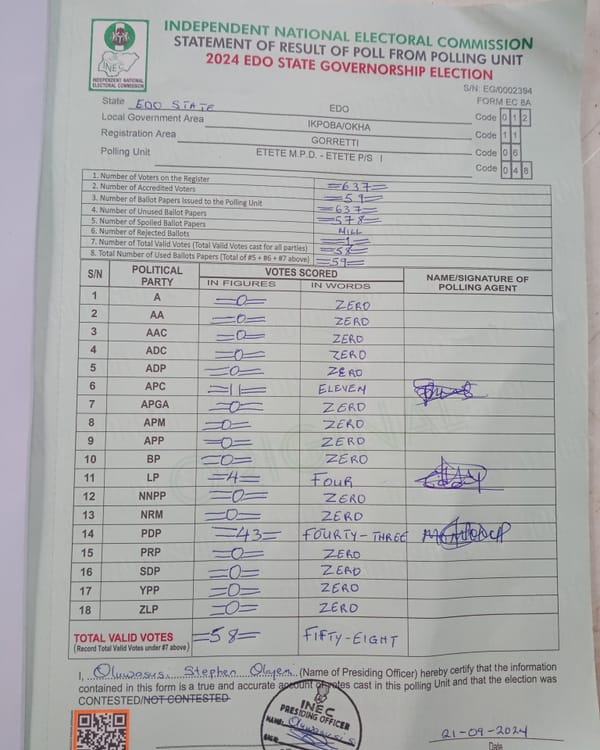 INDEPENDENT NATIONAL ELECTORAL COMMISSION
STATEMENT OF RESULT OF POLL FROM POLLING UNIT
2024 EDO STATE GOVERNORSHIP ELECTION
INEC
INDEPENDENT NATIONAL
ELECTORAL COMMISSION
S/N: EG/0002394
FORM EC 8A
State EDO STATE EDO Code 0 1 2
Local Government Area IKPOBA/OKHA Code 1 1
Registration Area GORRETTI Code 0 6
Polling Unit ETETE M.P.D. - ETETE P/S I Code 0 4 8
1. Number of Voters on the Register =637=
2. Number of Accredited Voters =59=
3. Number of Ballot Papers Issued to the Polling Unit =637=
4. Number of Unused Ballot Papers =578=
5. Number of Spoiled Ballot Papers NILL
6. Number of Rejected Ballots =1=
7. Number of Total Valid Votes (Total Valid Votes cast for all parties) =58=
8. Total Number of Used Ballots Papers (Total of #5 + #6 + #7 above) =59=
S/N POLITICAL PARTY VOTES SCORED NAME/SIGNATURE OF POLLING AGENT
IN FIGURES IN WORDS
1 A =0= ZERO
2 AA =0= ZERO
3 AAC =0= ZERO
4 ADC =0= ZERO
5 ADP =0= ZERO
6 APC =11= ELEVEN
7 APGA =0= ZERO
8 APM =0= ZERO
9 APP =0= ZERO
10 BP =0= ZERO
11 LP =4= FOUR
12 NNPP =0= ZERO
13 NRM =0= ZERO
14 PDP =43= FOURTY-THREE
15 PRP =0= ZERO
16 SDP =0= ZERO
17 YPP =0= ZERO
18 ZLP =0= ZERO
TOTAL VALID VOTES =58= FIFTY-EIGHT
(Record Total Valid Votes under #7 above)
I, Stephen (Name of Presiding Officer) hereby certify that the information
contained in this form is a true and accurate account of votes cast in this polling Unit and that the election was
CONTESTED/NOT CONTESTED
INEC
PRESIDING OFFICER
NAME:
SIGN:
21-09-2024
Date